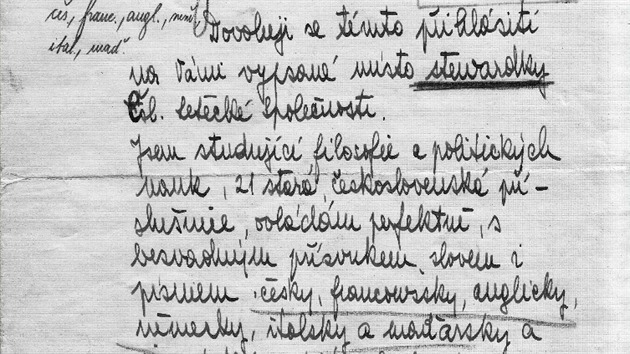 čes, franc., angl., něm.
ital., maď.
Dovoluji se tímto přihlásiti
na Vámi vypsané místo stewardky
Čsl. letecké společnosti.
Jsem studující filosofie a politických
nauk, 21 stará československá pří-
slušnice, ovládám perfektně, s
bezvadným přízvukem, slovem i
písmem česky, francouzsky, anglicky,
německy, italsky a maďarsky a